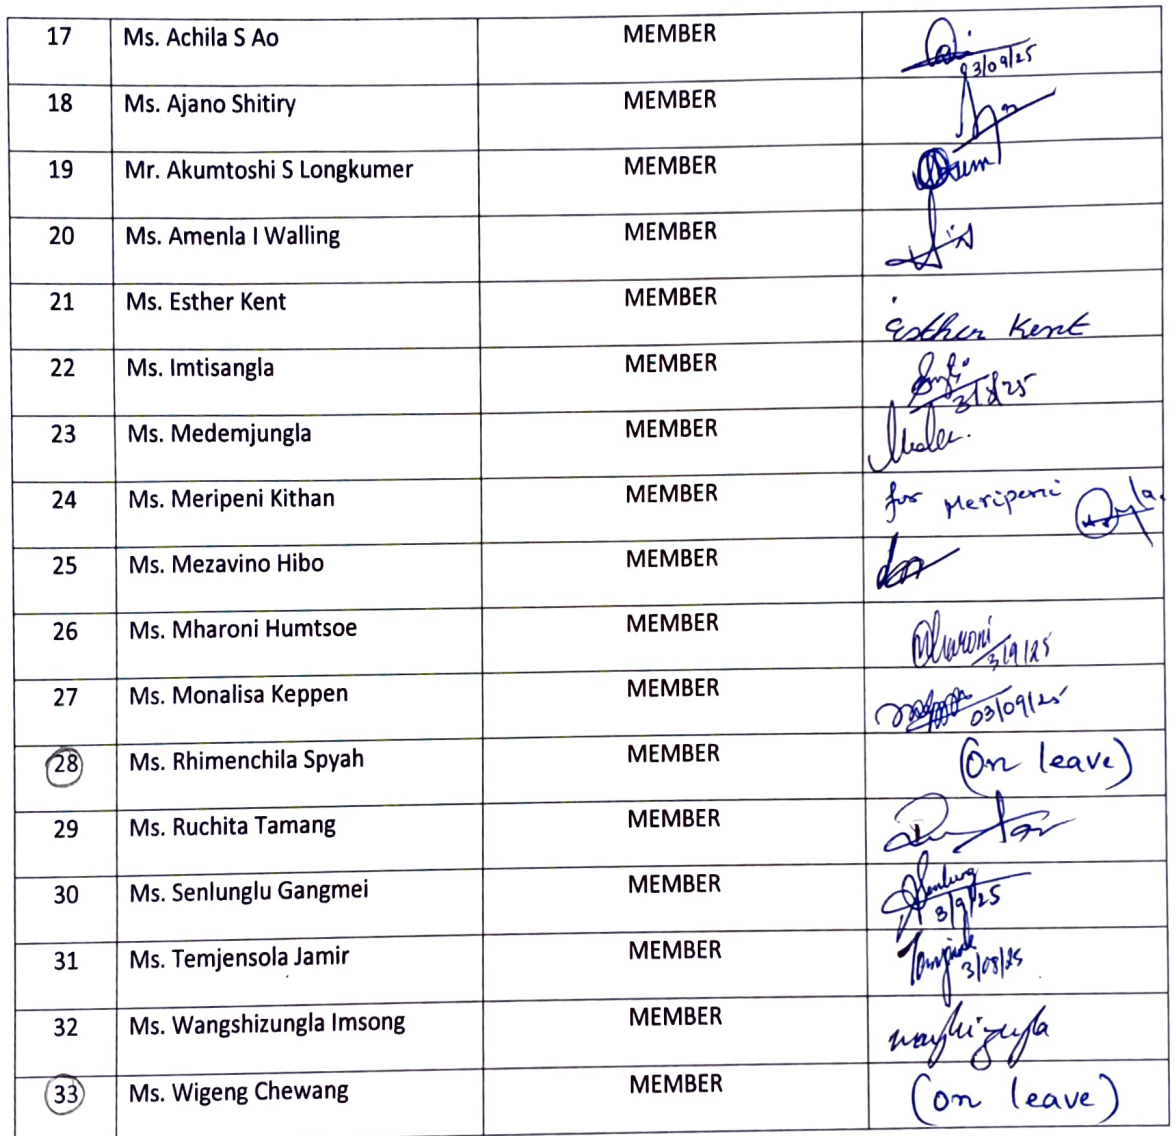 17 Ms. Achila S Ao MEMBER
03/09/25
18 Ms. Ajano Shitiry MEMBER
19 Mr. Akumtoshi S Longkumer MEMBER
20 Ms. Amenla I Walling MEMBER
21 Ms. Esther Kent MEMBER Esther Kent
22 Ms. Imtisangla MEMBER
23 Ms. Medemjungla MEMBER
24 Ms. Meripeni Kithan MEMBER for Meripeni
25 Ms. Mezavino Hibo MEMBER
26 Ms. Mharoni Humtsoe MEMBER Mharoni 3/9/25
27 Ms. Monalisa Keppen MEMBER 03/09/25
28 Ms. Rhimenchila Spyah MEMBER (On leave)
29 Ms. Ruchita Tamang MEMBER
30 Ms. Senlunglu Gangmei MEMBER
3/9/25
31 Ms. Temjensola Jamir MEMBER
3/08/25
32 Ms. Wangshizungla Imsong MEMBER
33 Ms. Wigeng Chewang MEMBER (on leave)